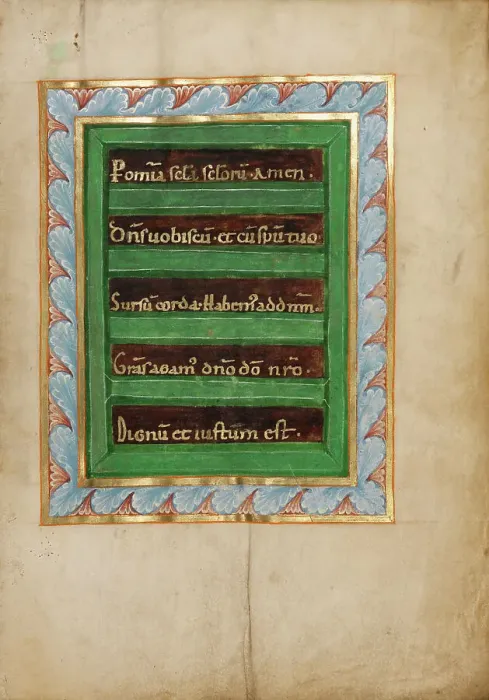 Pomīa sclā sclorū. Amen.
Dn̄suobiscū. et cū spū tuo
Sursū corda. Habem' ad dnm̄.
Grās agam' dn̄o dō nr̄o.
Dignū et iustum est.